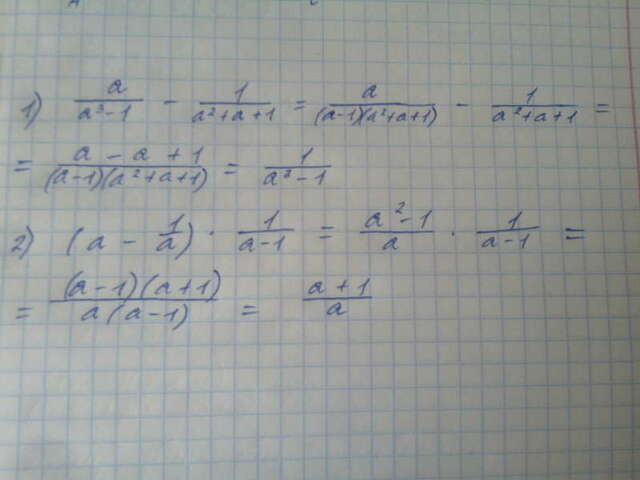 1) a/(a³-1) - 1/(a²+a+1) = a/((a-1)(a²+a+1)) - 1/(a²+a+1) =
= (a-a+1)/((a-1)(a²+a+1)) = 1/(a³-1)
2) (a - 1/a) · 1/(a-1) = (a²-1)/a · 1/(a-1) =
= ((a-1)(a+1))/(a(a-1)) = (a+1)/a